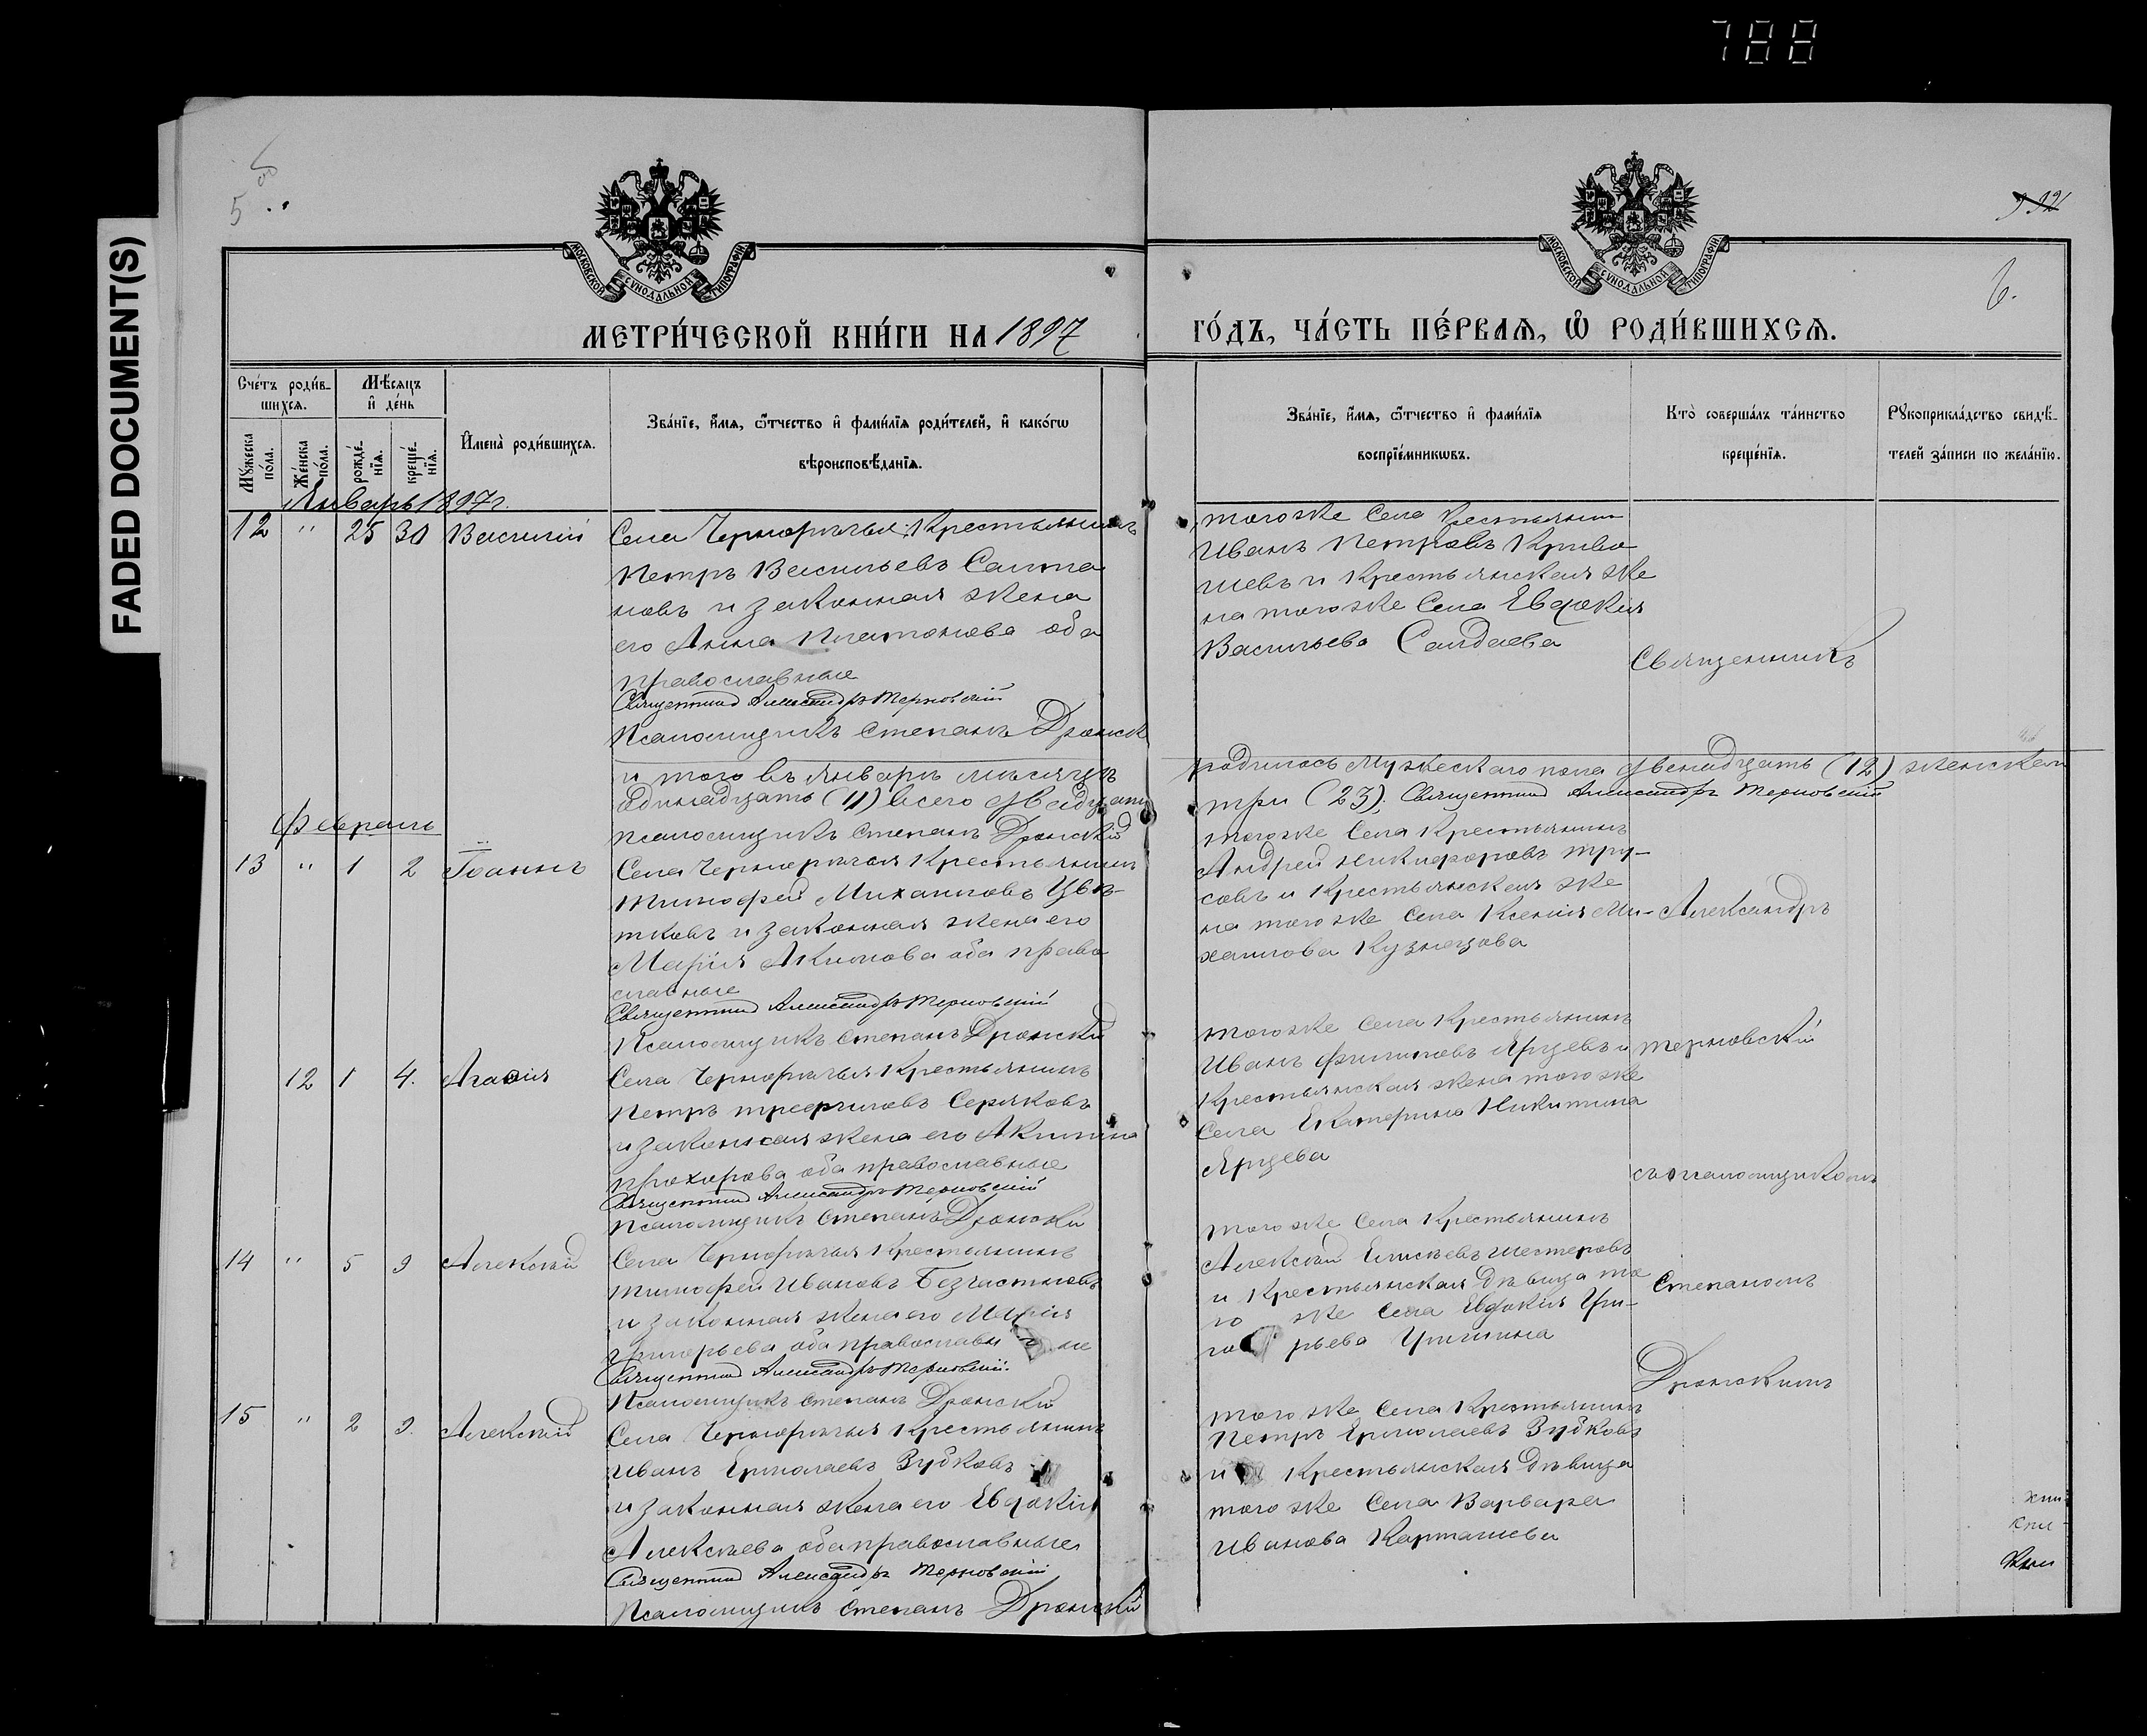 788
FADED DOCUMENT(S)
5 об
6.
МОСКОВСКОЙ СУНОДАЛЬНОЙ ТИПОГРАФІИ
МОСКОВСКОЙ СУНОДАЛЬНОЙ ТИПОГРАФІИ
МЕТРИ́ЧЕСКОЙ КНИ́ГИ НА 1897
ГО́ДЪ, ЧА́СТЬ ПЕ́РВАѦ, Ѡ҆ РОДИ́ВШИХСѦ.
Сче́тъ роди́в-
шихсѧ.
Мѣ́сѧцъ
и҆ де́нь
Мꙋ́жеска
по́ла.
Же́нска
по́ла.
рожде́-
нїѧ.
креще́-
нїѧ.
И҆мена̀ роди́вшихсѧ.
Зва́нїе, и҆́мѧ, ѻ҆́тчество и҆ фами́лїѧ роди́телей, и҆ како́гѡ
вѣроисповѣ́данїѧ.
Зва́нїе, и҆́мѧ, ѻ҆́тчество и҆ фами́лїѧ
воспрїе́мникѡвъ.
Кто̀ соверша́лъ та́инство
креще́нїѧ.
Рꙋкоприкла́дство свидѣ́-
телей за́писи по жела́нїю.
Январь 1897 г.
12 " 25 30 Василій
Села Чернорѣчья Крестьянинъ
Петръ Васильевъ Салта
новъ и законная жена
его Анна Платонова оба
православные
Священникъ Александръ Терновскій
Псаломщикъ Степанъ Дронск
тогоже Села Крестьянин
Иванъ Петровъ Криво
шевъ и Крестьянская же
на тогоже Села Евдокія
Васильева Салдаева
Священникъ
и того въ январѣ мѣсяцѣ
родилось Мужескаго пола двенадцать (12) женскаго
одинадцать (11) всего двадцать
три (23). Священникъ Александръ Терновскій
псаломщикъ Степанъ Дронскій
Февраль
13 " 1 2 Іоаннъ
Села Чернорѣчья Крестьянинъ
Тимофей Михаиловъ Цвѣ-
тковъ и законная жена его
Марія Акимова оба право
славные
Священникъ Александръ Терновскій
Псаломщикъ Степанъ Дронскій
тогоже Села Крестьянинъ
Андрей Никифоровъ Тру-
совъ и Крестьянская же
на того же Села Ксенія Ми-
хаилова Кузнецова
Александръ
12 1 4. Агаѳія
Села Чернорѣчья Крестьянинъ
Петръ Трефиловъ Серяковъ
и законная жена его Акилина
Прохорова оба православные
Священникъ Александръ Терновскій
Псаломщикъ Степанъ Дронскій
тогоже Села Крестьянинъ
Иванъ Филиповъ Ярцевъ и
Крестьянская жена того же
Села Екатерина Никитина
Ярцева
Терновскій
съ псаломщикомъ
14 " 5 9 Алексѣй
Села Чернорѣчья Крестьянинъ
Тимофей Ивановъ Безчастновъ
и законная жена его Марія
Григорьева оба православные
Священникъ Александръ Терновскій.
Псаломщикъ Степанъ Дронскій
того же Села Крестьянинъ
Алексѣй Елисѣевъ Шестеровъ
и Крестьянская дѣвица то
го же Села Евдокія Гри-
горьева Гришина
Степаномъ
Дронскимъ
15 " 2 9. Алексѣй
Села Чернорѣчья Крестьянинъ
Иванъ Ермолаевъ Зубковъ
и законная жена его Евдокія
Алексѣева оба православные
Священникъ Александръ Терновскій
Псаломщикъ Степанъ Дронскій
того же Села Крестьянинъ
Петръ Ермолаевъ Зубковъ
и Крестьянская дѣвица
того же Села Варвара
Иванова Карташева